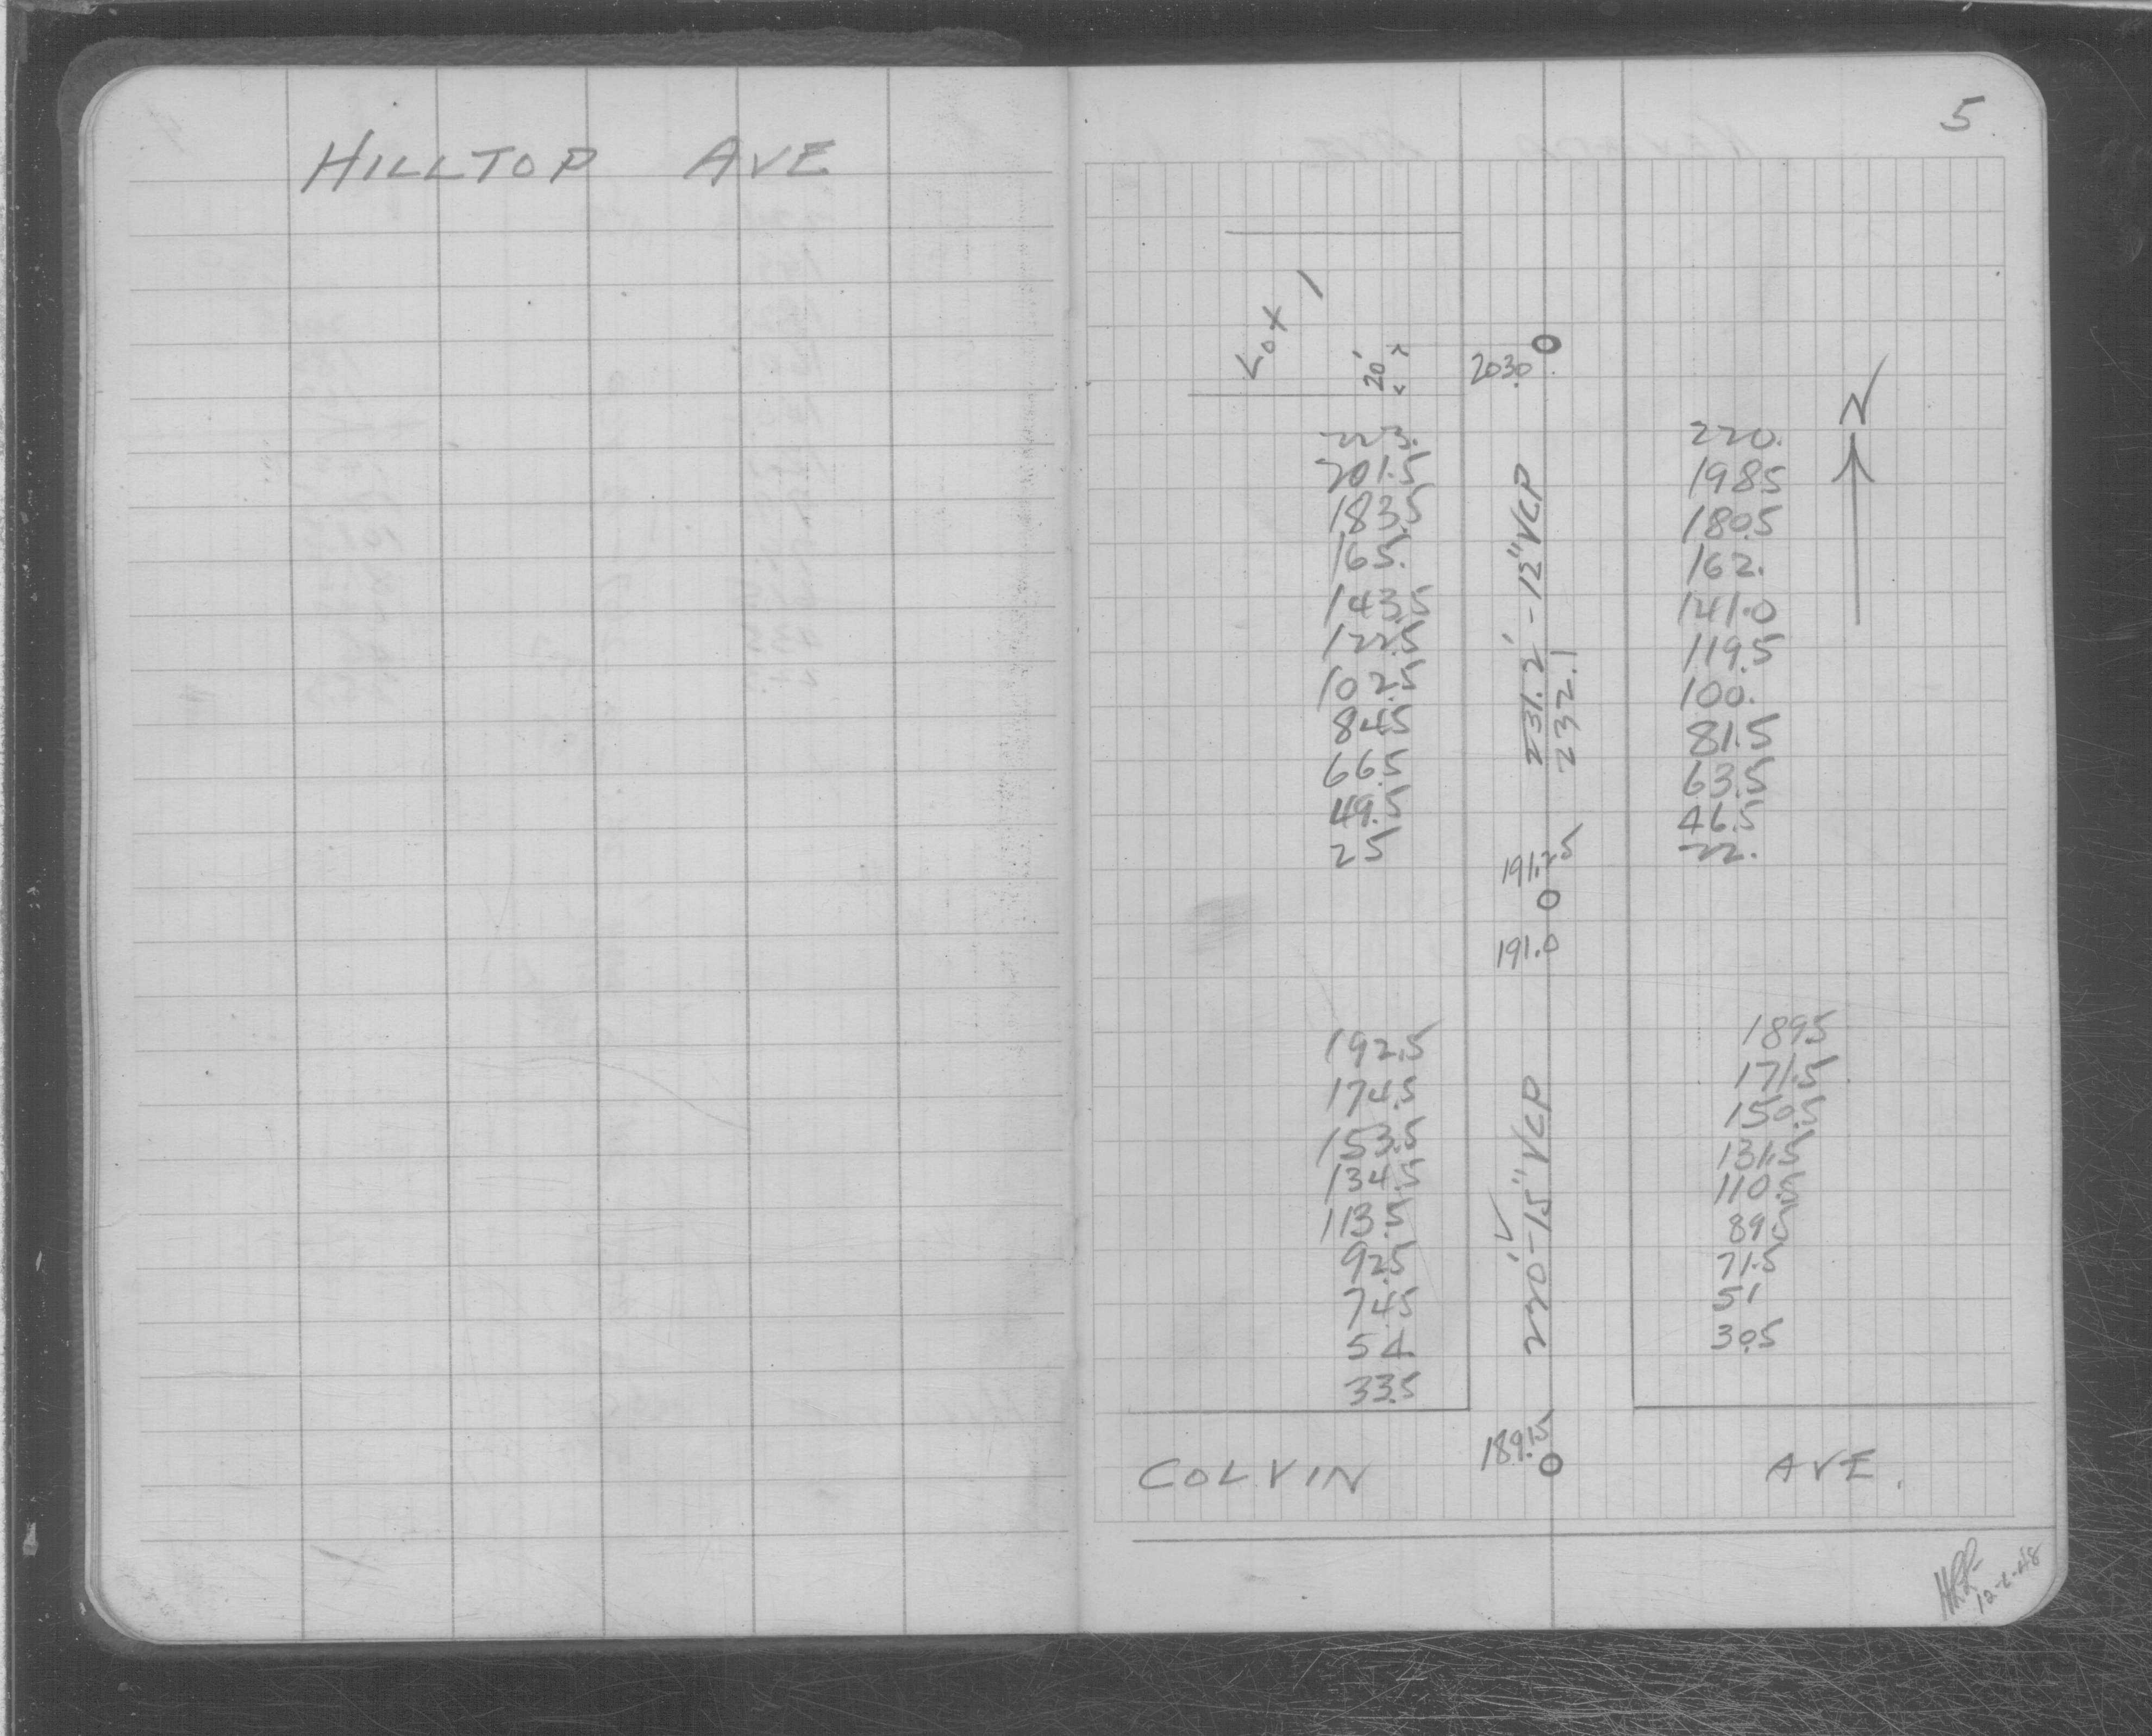 HILLTOP AVE
5
Lot 1
20'
203.0
223.
201.5
183.5
165.
143.5
122.5
102.5
84.5
66.5
49.5
25
231.2' - 12" VCP
232.1
220.
198.5
180.5
162.
141.0
119.5
100.
81.5
63.5
46.5
22.
N
191.25
191.0
192.5
174.5
153.5
134.5
113.5
92.5
74.5
54.
33.5
220' - 15" VCP
189.5
171.5
150.5
131.5
110.5
89.5
71.5
51
30.5
189.15
COLVIN AVE.